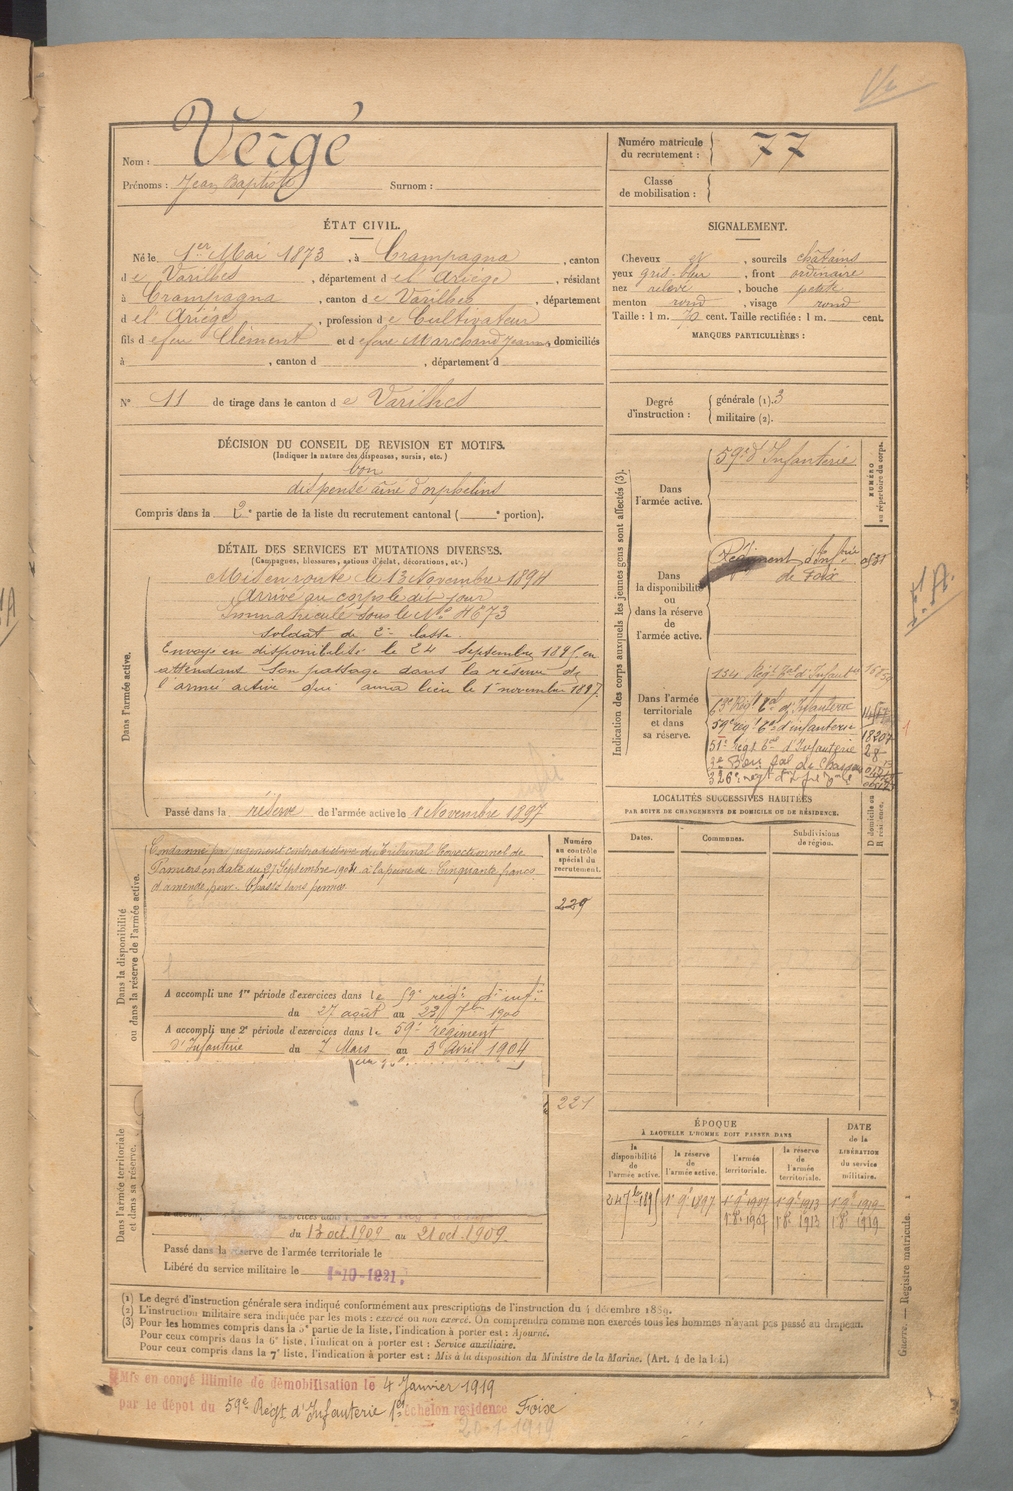 Nom : Vergé
Prénoms : Jean Baptiste Surnom :
Numéro matricule du recrutement : 77
Classe de mobilisation :
ÉTAT CIVIL.
Né le 1er Mai 1873, à Crampagna, canton
de Varilhes, département de l'Ariège, résidant
à Crampagna, canton de Varilhes, département
de l'Ariège, profession de Cultivateur
fils de feu Clément et de feue Marchand Jeanne, domiciliés
à , canton d , département d
N° 11 de tirage dans le canton de Varilhes
SIGNALEMENT.
Cheveux et , sourcils châtains
yeux gris-bleu , front ordinaire
nez relevé , bouche petite
menton rond , visage rond
Taille : 1 m. 70 cent. Taille rectifiée : 1 m. cent.
MARQUES PARTICULIÈRES :
Degré d'instruction : générale (1). 3
militaire (2).
DÉCISION DU CONSEIL DE REVISION ET MOTIFS.
(Indiquer la nature des dispenses, sursis, etc.)
bon
dispensé aîné d'orphelins
Compris dans la 2e partie de la liste du recrutement cantonal ( e portion).
DÉTAIL DES SERVICES ET MUTATIONS DIVERSES.
(Campagnes, blessures, actions d'éclat, décorations, etc.)
Dans l'armée active.
Mis en route le 13 Novembre 1894
Arrivé au corps le dit jour
Immatriculé sous le No 4673
Soldat de 2e classe.
Envoyé en disponibilité le 24 septembre 1895 en
attendant son passage dans la réserve de
l'armée active qui aura lieu le 1er novembre 1897.
Passé dans la réserve de l'armée active le 1 Novembre 1897
Dans la disponibilité ou dans la réserve de l'armée active.
Condamné par jugement contradictoire du Tribunal Correctionnel de
Pamiers en date du Septembre 1901 à la peine de Cinquante francs
d'amende pour Chasse sans permis
Numéro au contrôle spécial du recrutement.
239
A accompli une 1re période d'exercices dans le 59e régt d'infie
du 27 août au 23 7bre 1900
A accompli une 2e période d'exercices dans le 59e régiment
d'Infanterie du 7 Mars au 3 Avril 1904
Dans l'armée territoriale et dans sa réserve.
221
du 13 oct. 1909 au 21 oct. 1909.
Passé dans la réserve de l'armée territoriale le
Libéré du service militaire le 1-10-1921.
Indication des corps auxquels les jeunes gens sont affectés (3).
Dans l'armée active.
59e d'Infanterie
NUMÉRO au répertoire du corps.
Dans la disponibilité ou dans la réserve de l'armée active.
Régiment d'Infrie
de Foix
Dans l'armée territoriale et dans sa réserve.
134 Régt tal d'Infanterie
59e régt d'infanterie 18207
51e Régt d'Infanterie 28
326e
LOCALITÉS SUCCESSIVES HABITÉES
PAR SUITE DE CHANGEMENTS DE DOMICILE OU DE RÉSIDENCE.
Dates. Communes. Subdivisions de région. D domicile ou R résidence.
ÉPOQUE
À LAQUELLE L'HOMME DOIT PASSER DANS
la disponibilité de l'armée active.
la réserve de l'armée active.
l'armée territoriale.
la réserve de l'armée territoriale.
DATE de la LIBÉRATION du service militaire.
24 7bre 1895 1er 9bre 1897 1er 9bre 1907 1er 9bre 1913 1er 9bre 1919
1er 8bre 1907 1er 8bre 1913 1er 8bre 1919
(1) Le degré d'instruction générale sera indiqué conformément aux prescriptions de l'instruction du 4 décembre 1889.
(2) L'instruction militaire sera indiquée par les mots : exercé ou non exercé. On comprendra comme non exercés tous les hommes n'ayant pas passé au drapeau.
(3) Pour les hommes compris dans la 5e partie de la liste, l'indication à porter est : Ajourné.
Pour ceux compris dans la 6e liste, l'indication à porter est : Service auxiliaire.
Pour ceux compris dans la 7e liste, l'indication à porter est : Mis à la disposition du Ministre de la Marine. (Art. 4 de la loi.)
Guerre. — Registre matricule. 1
Mis en congé illimité de démobilisation le 4 Janvier 1919
par le dépôt du 59e Régt d'Infanterie 1er échelon résidence Foix
20-1-1919